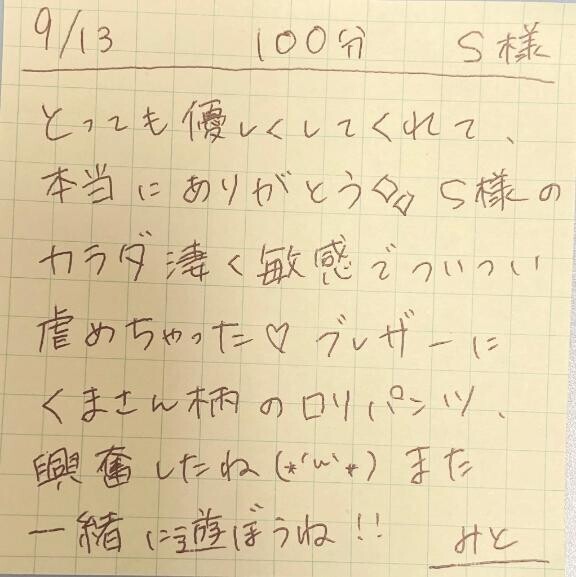 9/13 100分 S様
とっても優しくしてくれて、
本当にありがとう◇◇ S様の
カラダ凄く敏感でついつい
虐めちゃった♡ ブレザーに
くまさん柄のロリパンツ、
興奮したね(*'ω'*) また
一緒に遊ぼうね!!
みと